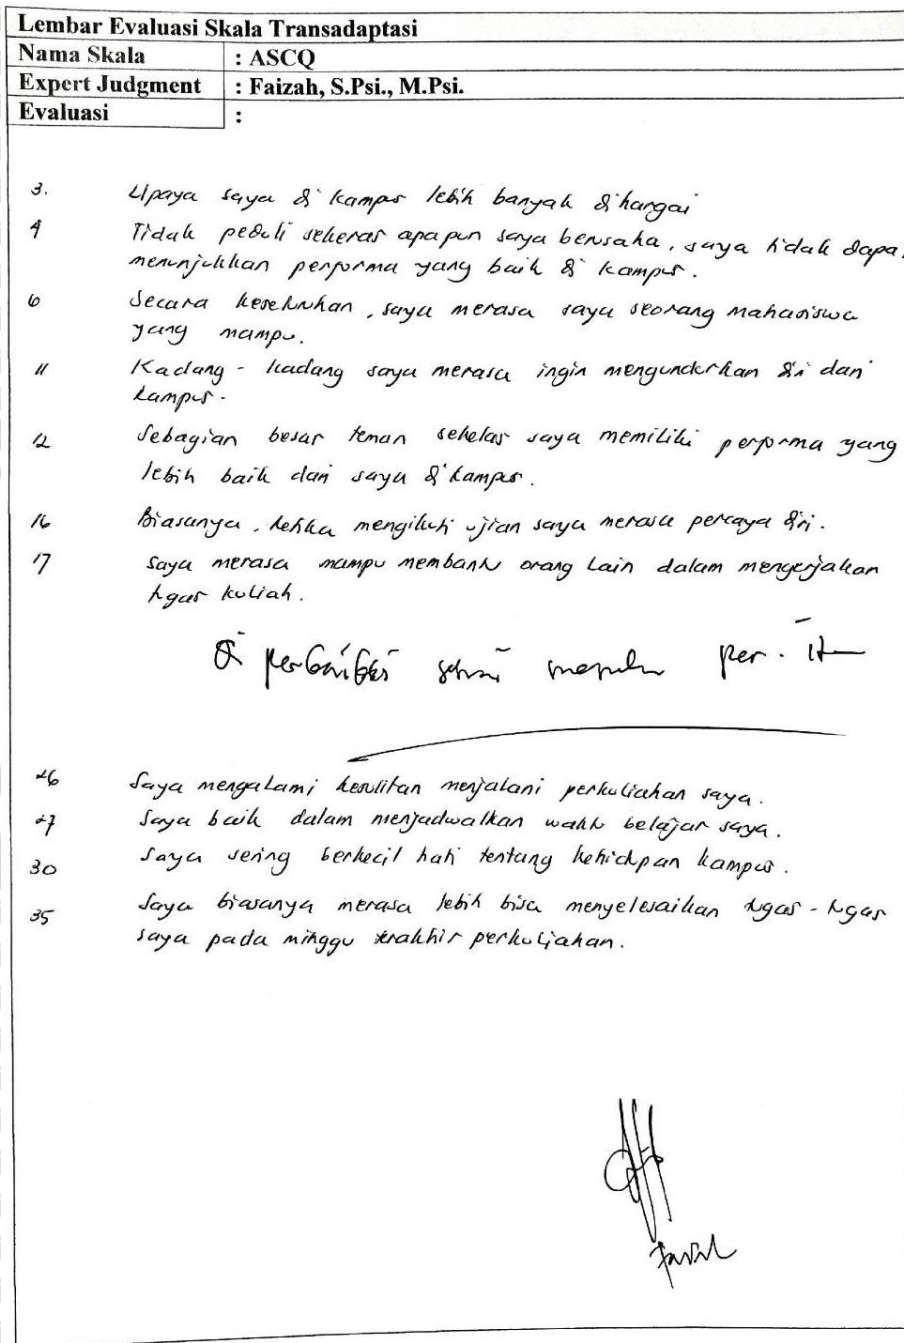 Lembar Evaluasi Skala Transadaptasi
Nama Skala : ASCQ
Expert Judgment : Faizah, S.Psi., M.Psi.
Evaluasi :
3. Upaya saya di kampus lebih banyak dihargai
4 Tidak peduli sekeras apapun saya berusaha, saya tidak dapa
menunjukkan performa yang baik di kampus.
6 Secara keseluruhan, saya merasa saya seorang mahasiswa
yang mampu.
11 Kadang - kadang saya merasa ingin mengundurkan diri dari
kampus.
12 Sebagian besar teman sekelas saya memiliki performa yang
lebih baik dari saya di kampus.
16 Biasanya, ketika mengikuti ujian saya merasa percaya diri.
17 Saya merasa mampu membantu orang lain dalam mengerjakan
tugas kuliah.
per
26 Saya mengalami kesulitan menjalani perkuliahan saya.
27 Saya baik dalam menjadwalkan waktu belajar saya.
30 Saya sering berkecil hati tentang kehidupan kampus.
35 Saya biasanya merasa lebih bisa menyelesaikan tugas - tugas
saya pada minggu terakhir perkuliahan.